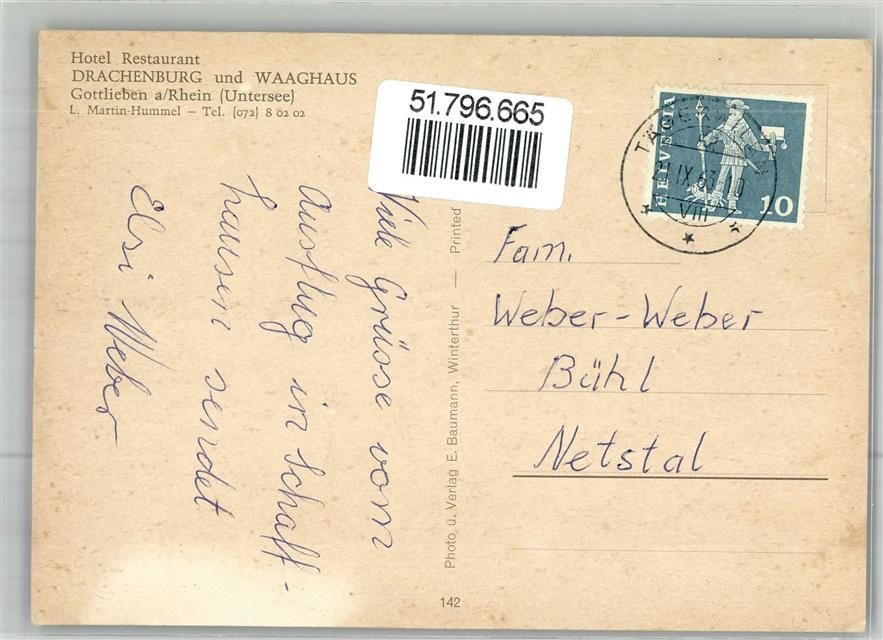 Hotel Restaurant
DRACHENBURG und WAAGHAUS
Gottlieben a/Rhein (Untersee)
L. Martin-Hummel – Tel. (072) 8 02 02
51.796.665
HELVETIA
10
IX 63
VIII
Viele Grüsse vom
Ausflug in Schaff-
hausen sendet
Elsi Weber
Photo u. Verlag E. Baumann, Winterthur — Printed
142
Fam.
Weber-Weber
Bühl
Netstal